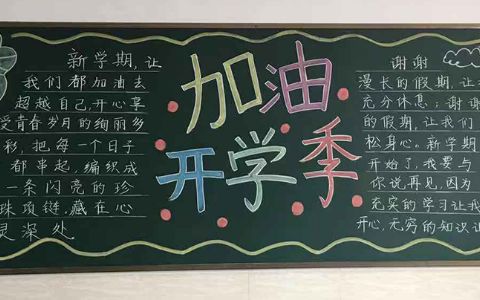 新学期,让
我们都加油去
超越自己,开心享
受青春岁月的绚丽多
彩,把每一个日子
都串起,编织成
一条闪亮的珍
珠项链,藏在心
灵深处
加油
开学季
谢谢
漫长的假期,让
充分休息;谢谢
的假期,让我们
松身心。新学期
开始了,我要与
你说再见,因为
充实的学习让我
开心,无穷的知识让